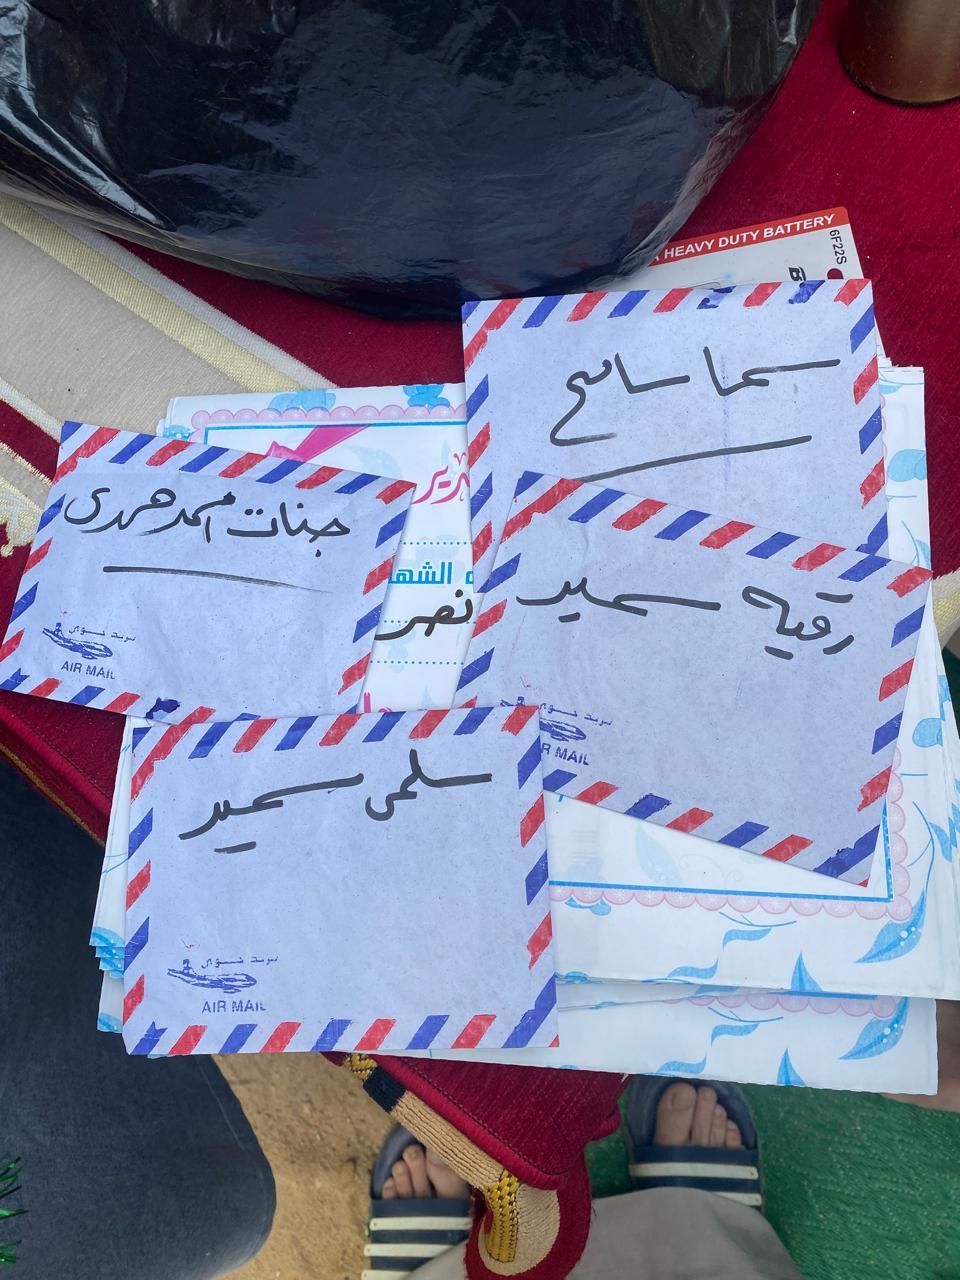 HEAVY DUTY BATTERY
6F22S
سما سامح
جنات محمد حمدى
بريد جوي
AIR MAIL
نصر
رقيه سمير
بريد جوي
AIR MAIL
سلمى سمير
بريد جوي
AIR MAIL